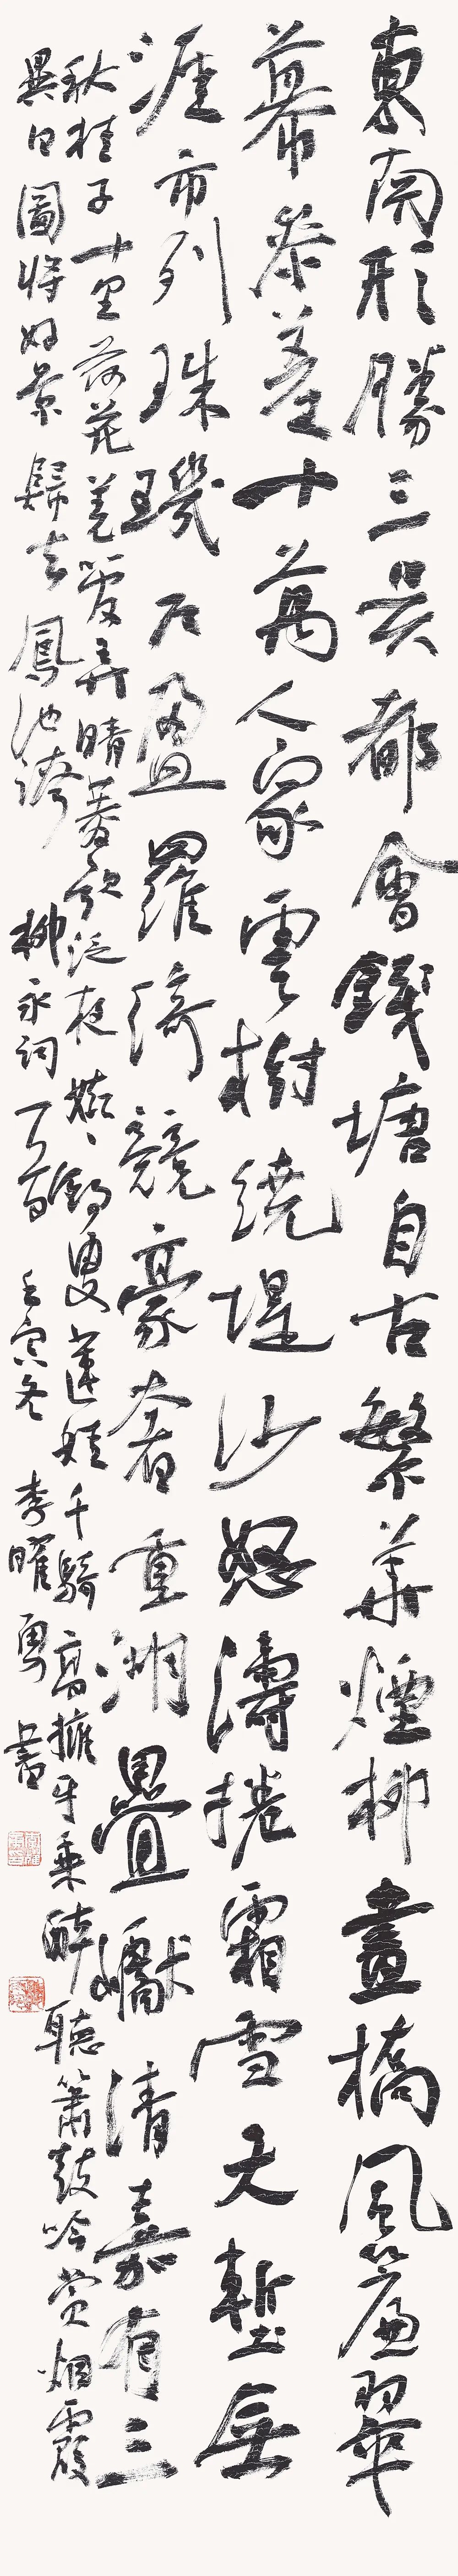 東南形勝三吳都會錢塘自古繁華煙柳畫橋風簾翠
幕參差十萬人家雲樹繞堤沙怒濤捲霜雪天塹無
涯市列珠璣戶盈羅綺競豪奢重湖疊巘清嘉有三
秋桂子十里荷花羌管弄晴菱歌泛夜嬉々釣叟蓮娃千騎高擁牙乘醉聽簫鼓吟賞烟霞
異日圖將好景歸去鳳池誇 柳永詞一首 壬寅冬 李曜勇書